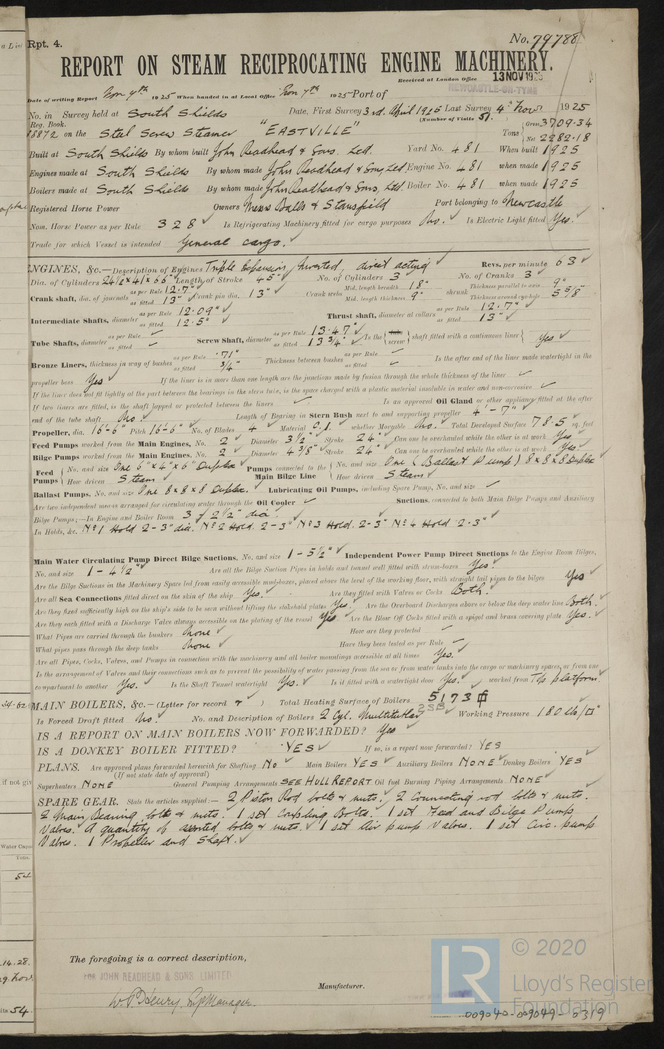 Rpt. 4.
No. 79788
REPORT ON STEAM RECIPROCATING ENGINE MACHINERY.
Received at London Office 13 NOV 1925
Date of writing Report Nov 7th 1925 When handed in at Local Office Nov 7th 1925 Port of NEWCASTLE-ON-TYNE
No. in Survey held at South Shields Date, First Survey 3rd April 1925 Last Survey 4th Nov 1925
Reg. Book. (Number of Visits 51.)
88872 on the Steel Screw Steamer "EASTVILLE" Tons Gross 3709.34 Net 2282.18
Built at South Shields By whom built John Readhead & Sons. Ltd. Yard No. 481 When built 1925
Engines made at South Shields By whom made John Readhead & Sons, Ltd. Engine No. 481 when made 1925
Boilers made at South Shields By whom made John Readhead & Sons, Ltd. Boiler No. 481 when made 1925
Registered Horse Power Owners Messrs Balls & Stansfield Port belonging to Newcastle
Nom. Horse Power as per Rule 328 Is Refrigerating Machinery fitted for cargo purposes No. Is Electric Light fitted Yes.
Trade for which Vessel is intended General cargo.
ENGINES, &c.—Description of Engines Triple Expansion, Inverted, direct acting Revs. per minute 63
Dia. of Cylinders 24½"x41"x66" Length of Stroke 45" No. of Cylinders 3 No. of Cranks 3
Crank shaft, dia. of journals as per Rule 12.7" as fitted 13" Crank pin dia. 13" Crank webs Mid. length breadth 18" Mid. length thickness 9" shrunk Thickness parallel to axis 9" Thickness around eye-hole 5 5/8"
Intermediate Shafts, diameter as per Rule 12.09" as fitted 12.5" Thrust shaft, diameter at collars as per Rule 12.7" as fitted 13"
Tube Shafts, diameter as per Rule — as fitted — Screw Shaft, diameter as per Rule 13.47" as fitted 13¾" Is the screw shaft fitted with a continuous liner Yes
Bronze Liners, thickness in way of bushes as per Rule .71" as fitted ¾" Thickness between bushes as per Rule — as fitted — Is the after end of the liner made watertight in the
propeller boss Yes If the liner is in more than one length are the junctions made by fusion through the whole thickness of the liner —
If the liner does not fit tightly at the part between the bearings in the stern tube, is the space charged with a plastic material insoluble in water and non-corrosive —
If two liners are fitted, is the shaft lapped or protected between the liners — Is an approved Oil Gland or other appliance fitted at the after
end of the tube shaft No. Length of Bearing in Stern Bush next to and supporting propeller 4'-7"
Propeller, dia. 16'-6" Pitch 16'-6" No. of Blades 4 Material C.I. whether Movable No. Total Developed Surface 78.5 sq. feet
Feed Pumps worked from the Main Engines, No. 2 Diameter 3½" Stroke 24" Can one be overhauled while the other is at work Yes
Bilge Pumps worked from the Main Engines, No. 2 Diameter 4⅜" Stroke 24" Can one be overhauled while the other is at work Yes
Feed Pumps No. and size One 6"x4"x6" Duplex How driven Steam Pumps connected to the Main Bilge Line No. and size One (Ballast Pump) 8x8x8 Duplex How driven Steam
Ballast Pumps, No. and size One 8x8x8 Duplex. Lubricating Oil Pumps, including Spare Pump, No. and size —
Are two independent means arranged for circulating water through the Oil Cooler Suctions, connected to both Main Bilge Pumps and Auxiliary
Bilge Pumps;—In Engine and Boiler Room 3 of 2½" dia.
In Holds, &c. No 1 Hold 2-3" dia. No 2 Hold. 2-3" No 3 Hold. 2-3" No 4 Hold 2-3"
Main Water Circulating Pump Direct Bilge Suctions, No. and size 1-5½" Independent Power Pump Direct Suctions to the Engine Room Bilges,
No. and size 1-4½" Are all the Bilge Suction Pipes in holds and tunnel well fitted with strum-boxes Yes.
Are the Bilge Suctions in the Machinery Space led from easily accessible mud-boxes, placed above the level of the working floor, with straight tail pipes to the bilges Yes
Are all Sea Connections fitted direct on the skin of the ship Yes. Are they fitted with Valves or Cocks Both.
Are they fixed sufficiently high on the ship's side to be seen without lifting the stokehold plates Yes Are the Overboard Discharges above or below the deep water line Both.
Are they each fitted with a Discharge Valve always accessible on the plating of the vessel Yes Are the Blow Off Cocks fitted with a spigot and brass covering plate Yes.
What Pipes are carried through the bunkers None How are they protected —
What pipes pass through the deep tanks None Have they been tested as per Rule —
Are all Pipes, Cocks, Valves, and Pumps in connection with the machinery and all boiler mountings accessible at all times Yes.
Is the arrangement of Valves and their connections such as to prevent the possibility of water passing from the sea or from water tanks into the cargo or machinery spaces, or from one
compartment to another Yes. Is the Shaft Tunnel watertight Yes. Is it fitted with a watertight door Yes. worked from Top platform.
MAIN BOILERS, &c.—(Letter for record r) Total Heating Surface of Boilers 5173
Is Forced Draft fitted No. No. and Description of Boilers 2 Cyl. Multitubular 2SB Working Pressure 180 lb/□"
IS A REPORT ON MAIN BOILERS NOW FORWARDED? Yes
IS A DONKEY BOILER FITTED? YES If so, is a report now forwarded? YES
PLANS. Are approved plans forwarded herewith for Shafting No Main Boilers YES Auxiliary Boilers NONE Donkey Boilers YES
(If not state date of approval)
Superheaters NONE General Pumping Arrangements SEE HULL REPORT Oil fuel Burning Piping Arrangements NONE
SPARE GEAR. State the articles supplied:— 2 Piston Rod bolts & nuts. 2 Connecting rod bolts & nuts.
2 Main Bearing bolts & nuts. 1 set Coupling Bolts. 1 set Feed and Bilge Pump
Valves. A quantity of assorted bolts & nuts. 1 set Air pump Valves. 1 set Circ. pump
Valves. 1 Propeller and Shaft.
The foregoing is a correct description,
FOR JOHN READHEAD & SONS LIMITED
Manufacturer.
© 2020
LR
Lloyd's Register
Foundation
009040-009049-0319
54
14.28.